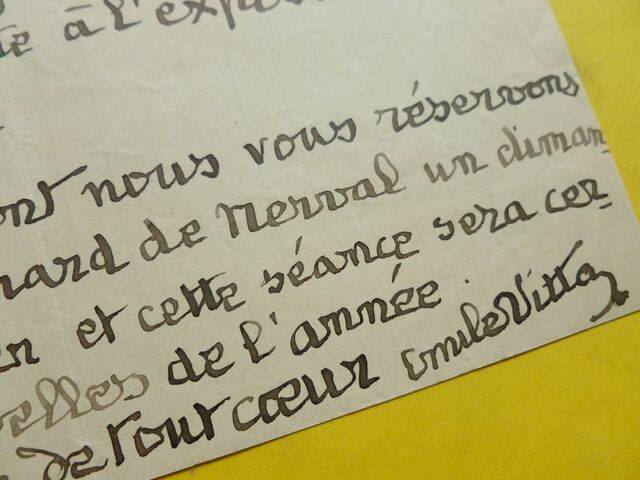 à l'expos
ont nous vous réservons
nard de Nerval un diman-
en et cette séance sera cer-
elles de l'année.
de tout cœur Emile Vitta